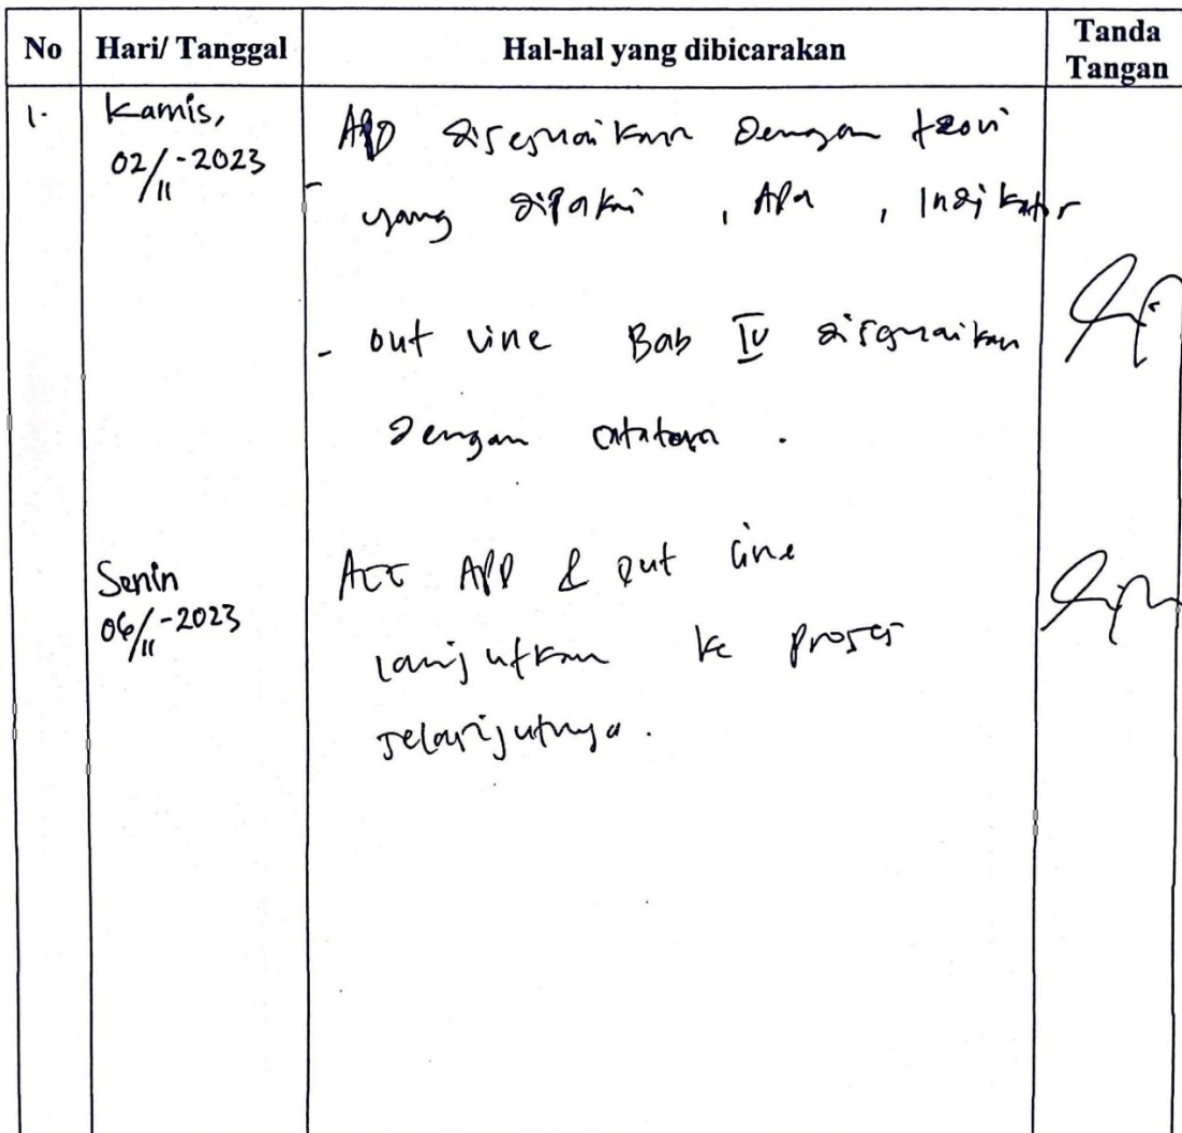 No Hari/ Tanggal Hal-hal yang dibicarakan Tanda Tangan
1. Kamis, 02/11-2023
- APD disesuaikan dengan teori
yang dipakai , Apa , Indikator
- out line Bab IV disesuaikan
dengan catatan .
Senin 06/11-2023
Acc APD & out line
lanjutkan ke proses
selanjutnya .